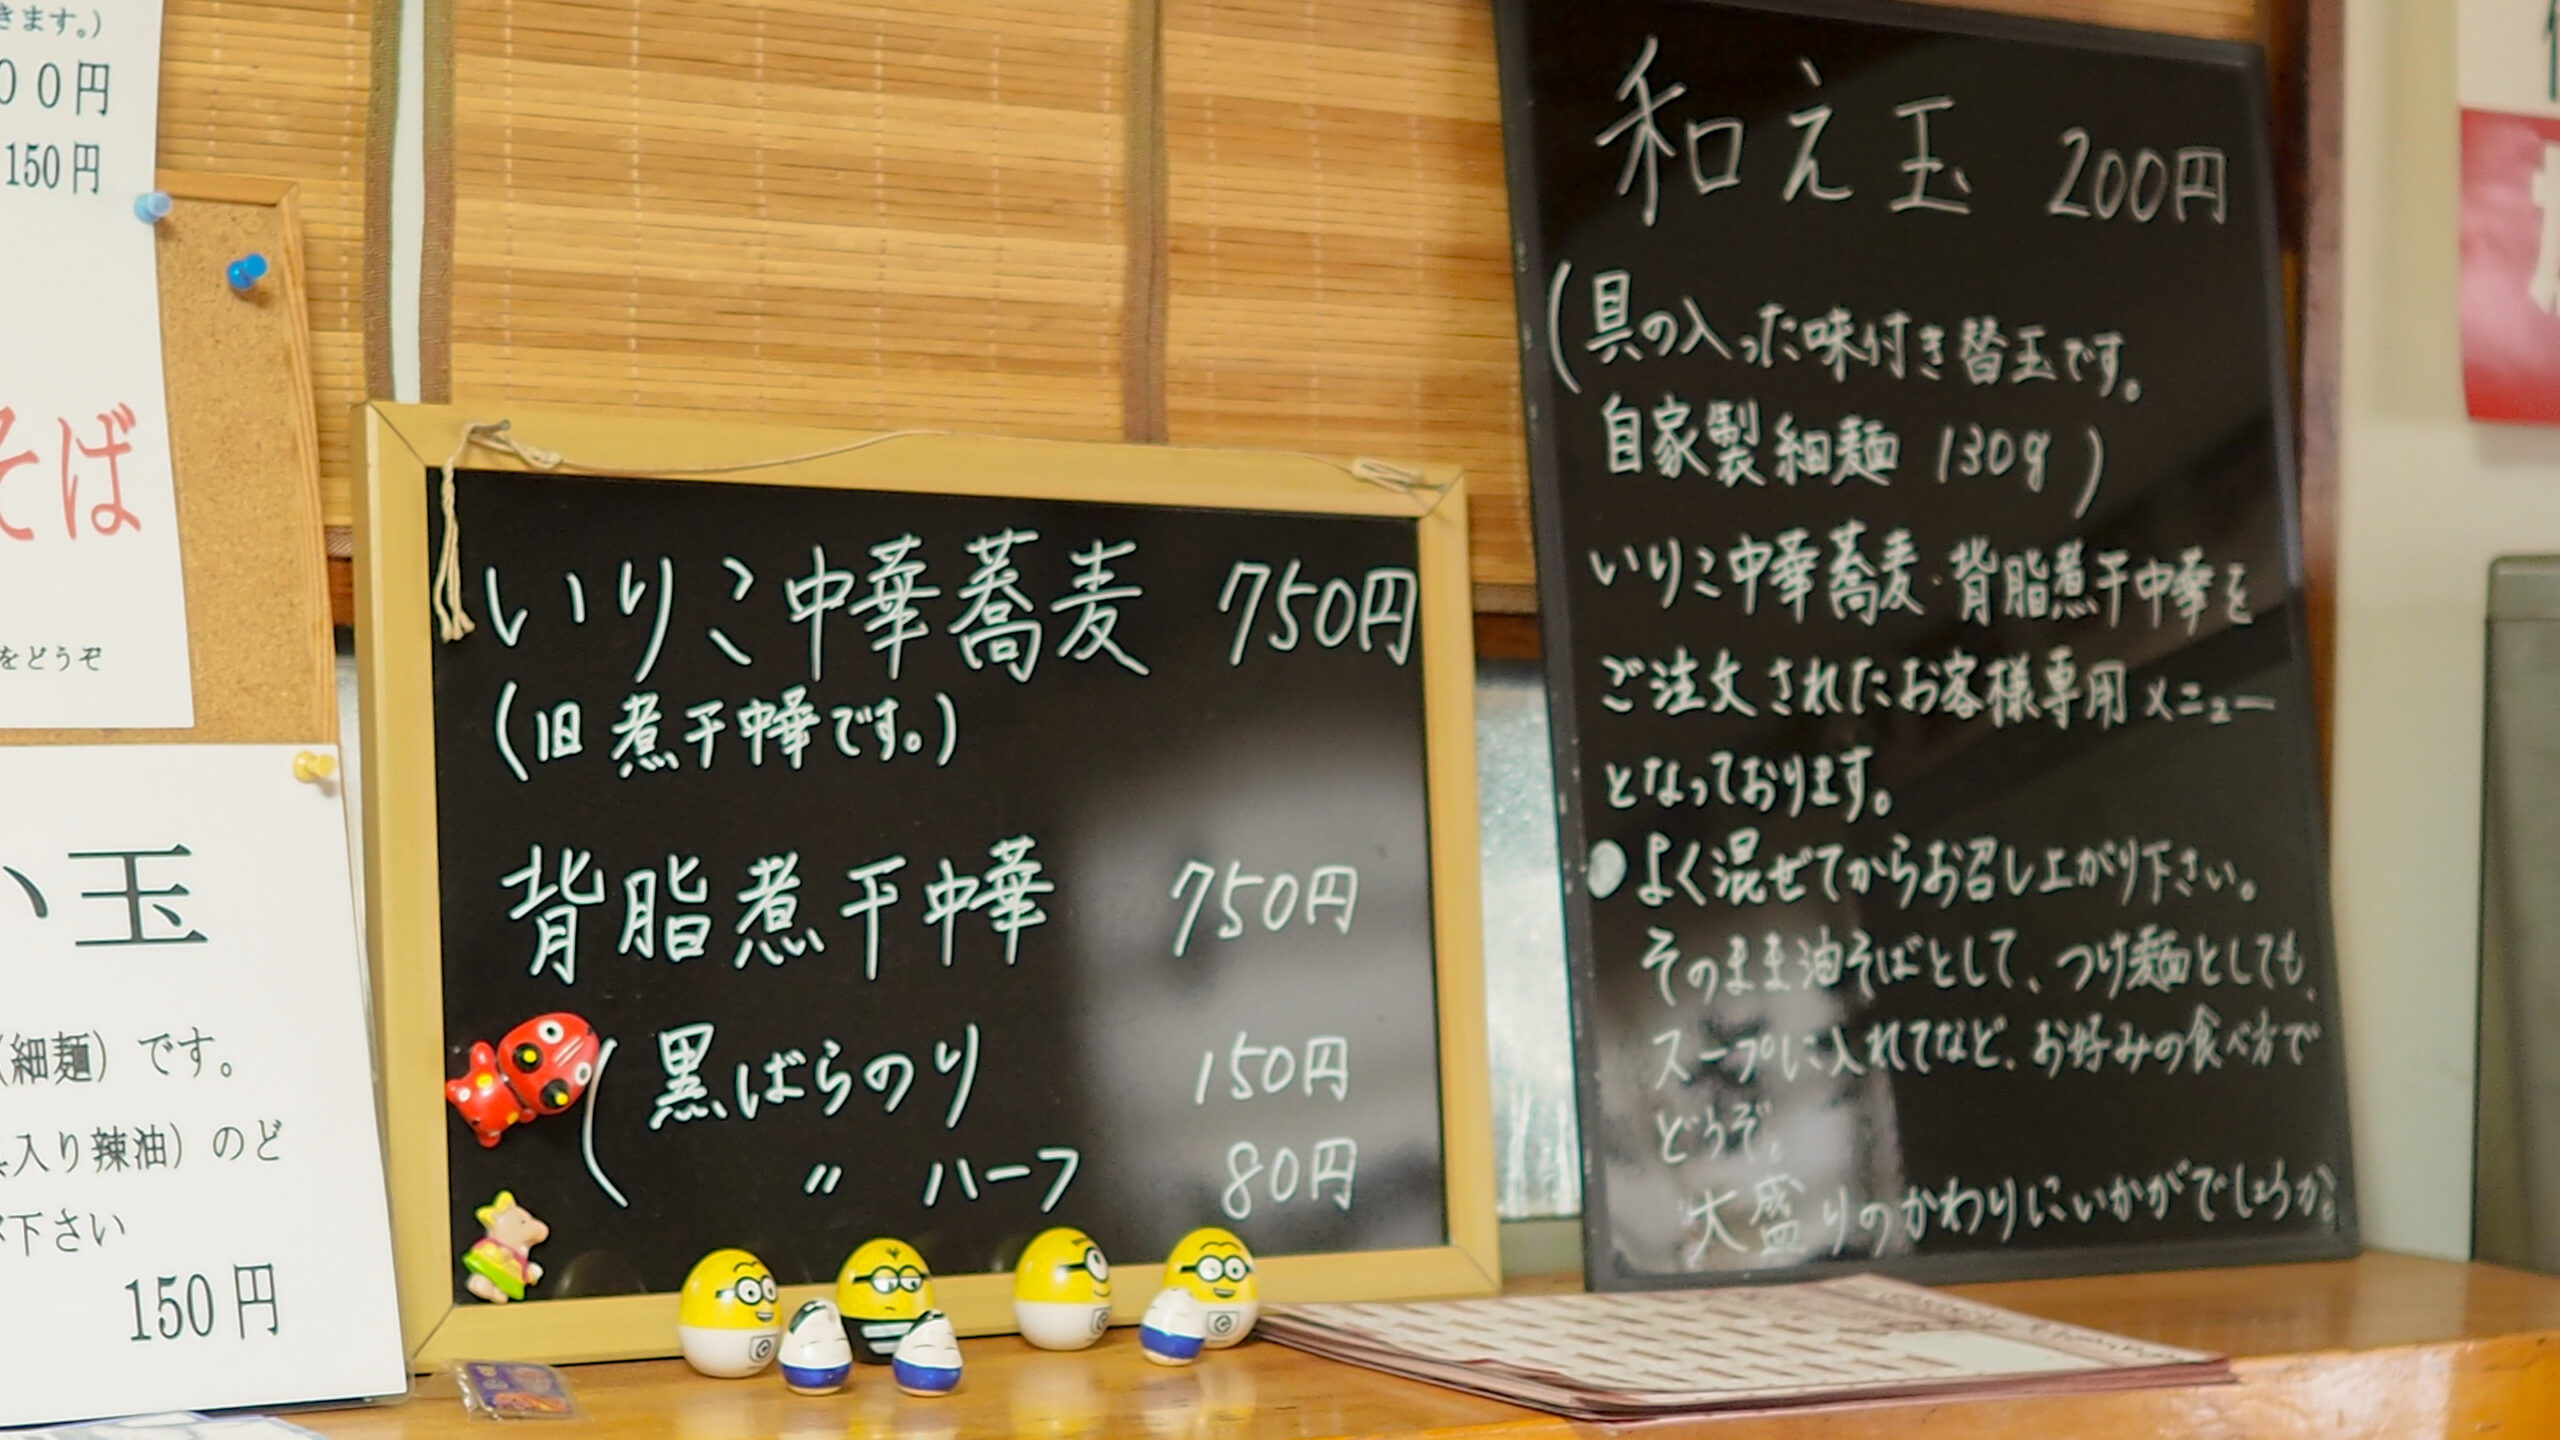 きます。)
００円
150円
そば
をどうぞ
い玉
(細麺)です。
入り辣油)のど
下さい
150円
いりこ中華蕎麦 750円
(旧煮干中華です。)
背脂煮干中華 750円
(黒ばらのり 150円
〃 ハーフ 80円
和え玉 200円
(具の入った味付き替玉です。
自家製細麺 130g)
いりこ中華蕎麦・背脂煮干中華を
ご注文されたお客様専用メニュー
となっております。
●よく混ぜてからお召し上がり下さい。
そのまま油そばとして、つけ麺としても、
スープに入れてなど、お好みの食べ方で
どうぞ。
大盛りのかわりにいかがでしょうか。